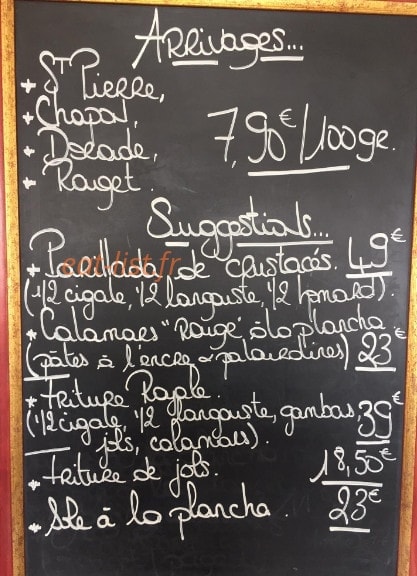 Arrivages...
+ St Pierre,
+ Chapon,
+ Dorade, 7,90€/100gr.
+ Rouget.
Suggestions...
+ Parillada de crustacés. 49€
(1/2 cigale, 1/2 langouste, 1/2 homard).
+ Calamars "Rouge" à la plancha.
(pâtes à l'encre & palourdines) 23€
+ Friture Royale.
(1/2 cigale, 1/2 langouste, gambas, 39€
jols, calamars).
+ Friture de jols. 18,50€
+ Sole à la plancha. 23€
eat-list.fr